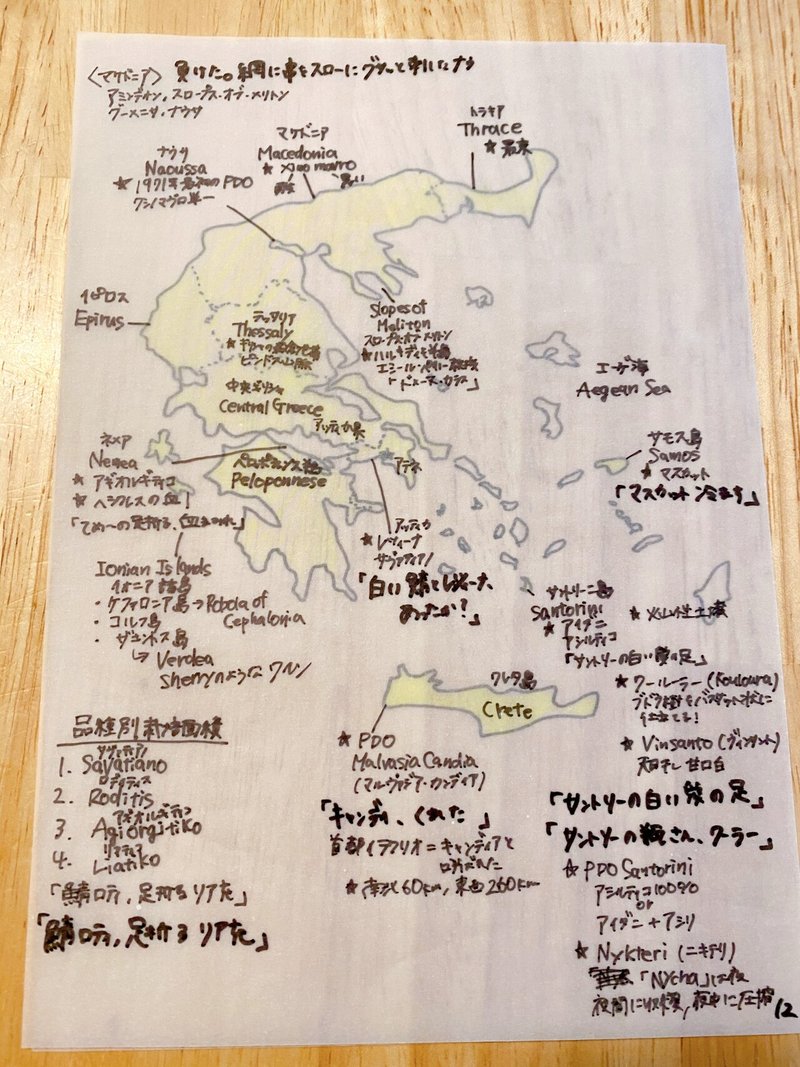 〈マケドニア〉 負けた。網に串をスローにグサッと刺したナウ
アミンデオン、スロープス・オブ・メリトン
グーメニサ、ナウサ
トラキア
Thrace
★ 最東
マケドニア
Macedonia
★ Xino mavro
黒い
ナウサ
Naoussa
★ 1971年最初のPDO
クシノマヴロ単一
イピロス
Epirus
テッサリア
Thessaly
ピンドス山脈
Slopes of
Meliton
スロープス・オブ・メリトン
★ ハルキディキ半島
「ドメーヌ・カラス」
エーゲ海
Aegean Sea
中央ギリシャ
Central Greece
アッティカ県
アテネ
サモス島
Samos
★ マスカット
「マスカット 冷ます」
ネメア
Nemea
★ アギオルギティコ
★ ヘラクレスの血!
ペロポネソス
Peloponnese
アッティカ
★ レツィーナ
サヴァティアノ
Ionian Islands
イオニア諸島
・ケファロニア島→Robola of
Cephalonia
・コルフ島
・ザキントス島
↳ Verdea
sherryのようなワイン
サントリーニ島
Santorini
★ アイダニ
アシルティコ
「サントリーの白い鮫の足」
★ 火山性土壌
★ クールーラー (Kouloura)
ブドウ樹をバスケット状に
仕立てる!
★ Vinsanto (ヴィンサント)
天日干し 甘口白
クレタ島
Crete
★ PDO
Malvasia Candia
(マルヴァジア・カンディア)
「キャンディ、くれた」
首都イラクリオ=キャンディアと
呼ばれた
★ 南北60km, 東西260km
「サントリーの白い鮫の足」
「サントリーの瓶さん、クーラー」
☆ PDO Santorini
アシルティコ100%
or
アイダニ+アシリ
★ Nykteri (ニキテリ)
「Nycha」は夜
夜間に収穫, 夜中に圧搾
品種別栽培面積
サヴァティアノ
1. Savatiano
ロディティス
2. Roditis
アギオルギティコ
3. Agiorgitiko
リアティコ
4. Liatiko
「鯖ロティ, 足折るリア充」
「鯖ロティ, 足折るリア充」
12